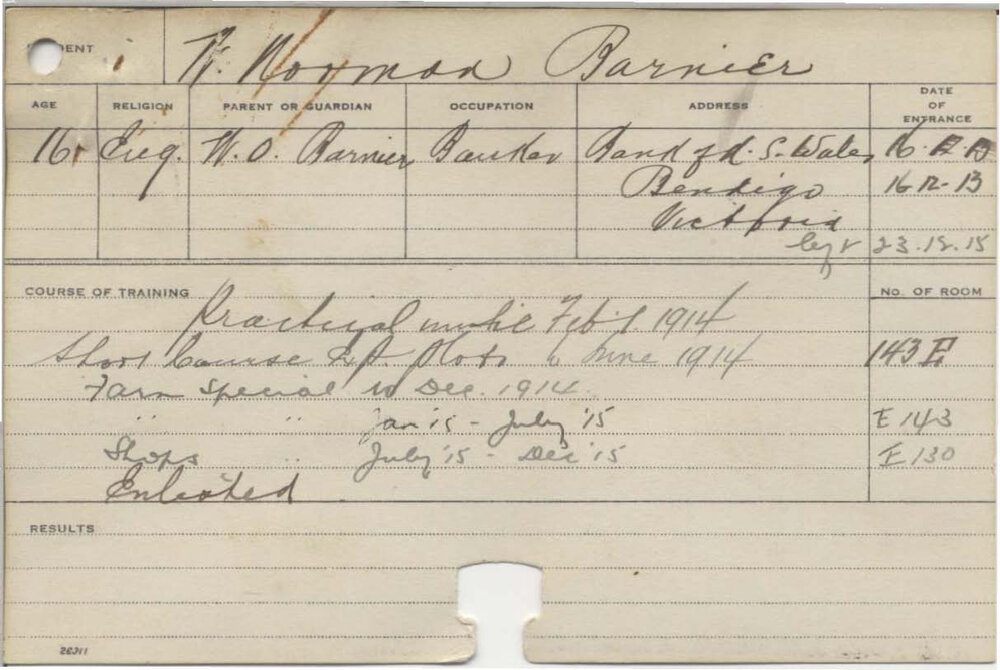 STUDENT W. Norman Barnier
AGE RELIGION PARENT OR GUARDIAN OCCUPATION ADDRESS DATE OF ENTRANCE
16 Eng. W. O. Barnier Banker Bank of N. S. Wales 16 12 13
Bendigo 16 12 - 13
Victoria
left 23.12.15
COURSE OF TRAINING No. OF ROOM
Practical until Feb 1. 1914
Short Course Exp. plots to June 1914 143 E
Farm Special to Dec. 1914
" " Jan '15 - July '15 E 143
Shops " July '15 - Dec '15 E 130
Enlisted
RESULTS
26311